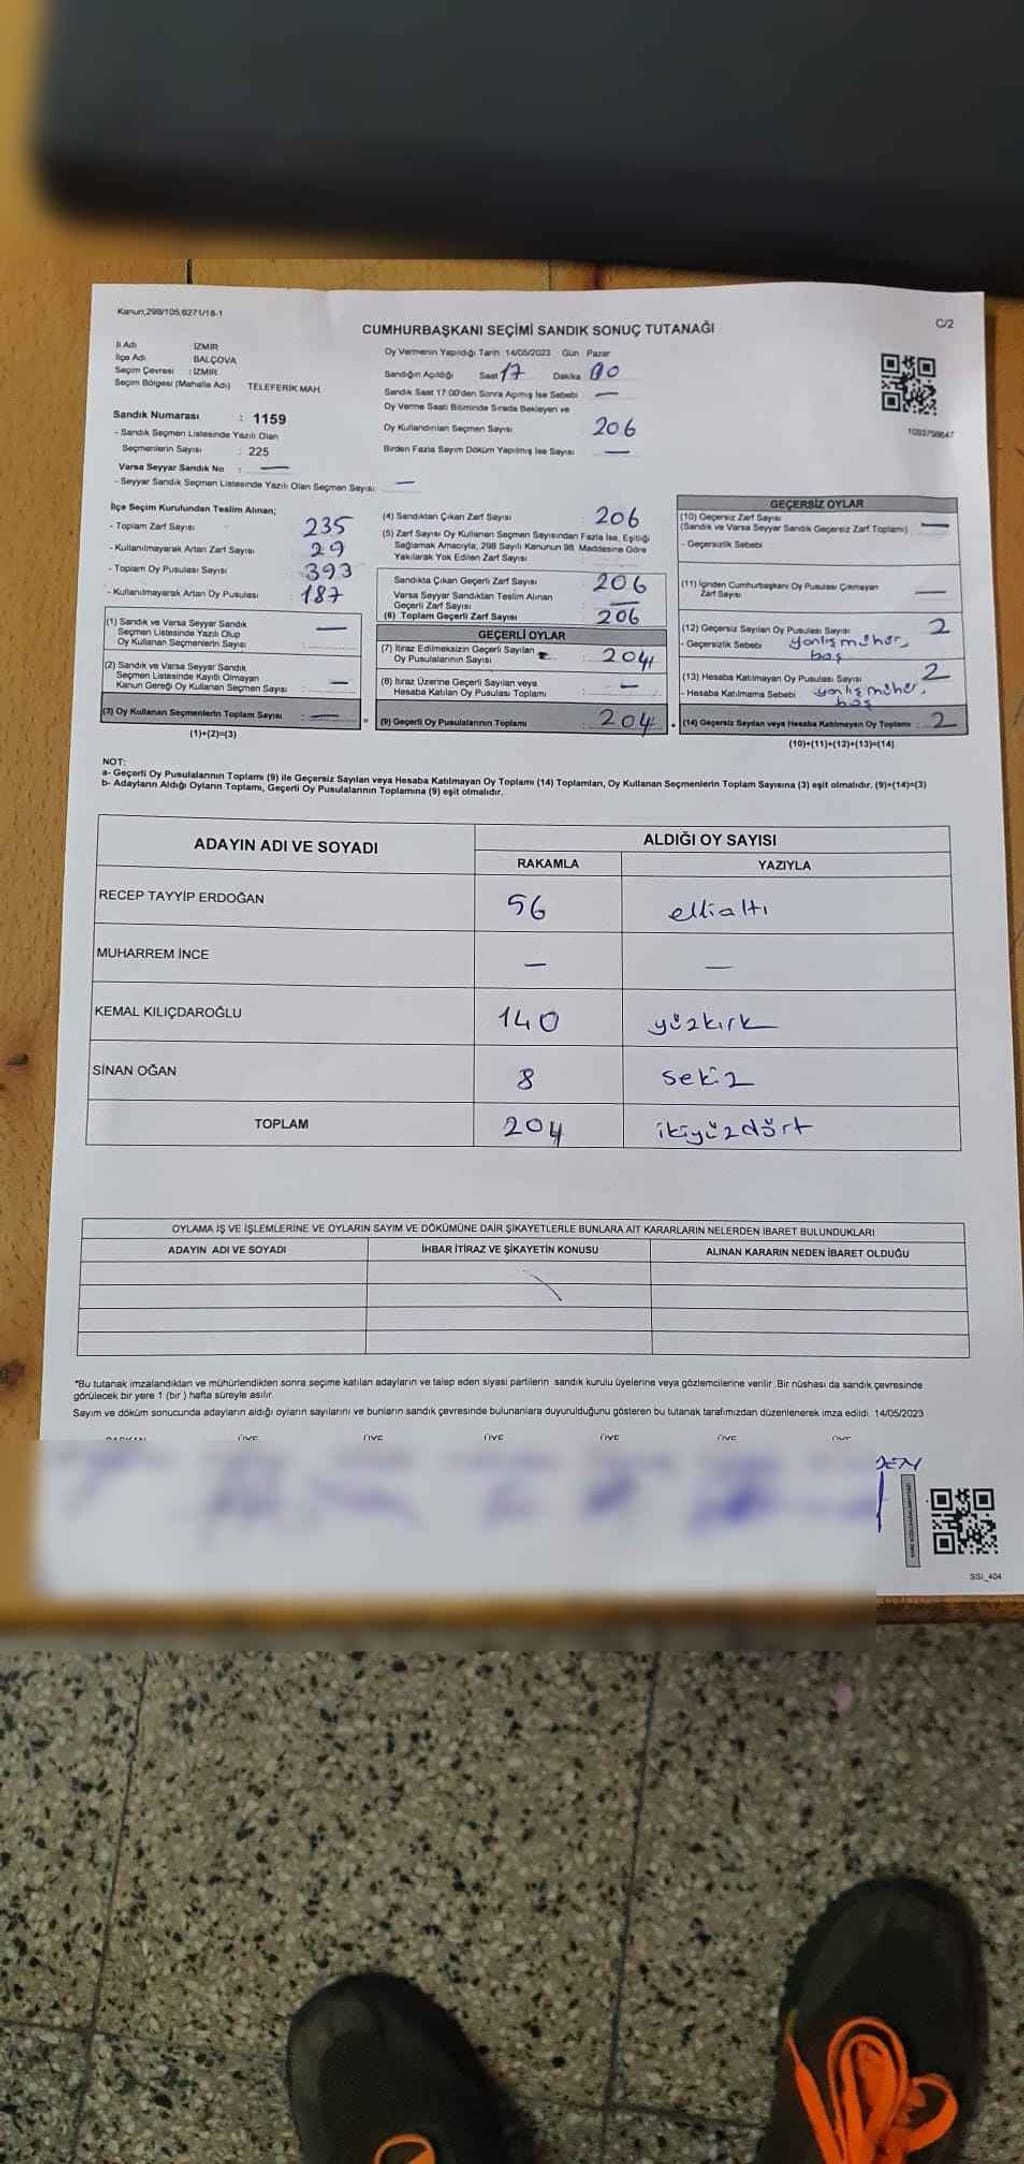 Kanun,298/105,6271/18-1
C/2
CUMHURBAŞKANI SEÇİMİ SANDIK SONUÇ TUTANAĞI
İl Adı : İZMİR
İlçe Adı BALÇOVA
Seçim Çevresi : İZMİR
Seçim Bölgesi (Mahalle Adı) TELEFERİK MAH
Oy Vermenin Yapıldığı Tarih 14/05/2023 Gün Pazar
Sandığın Açıldığı Saat 17 Dakika 00
Sandık Saat 17.00'den Sonra Açılmış İse Sebebi —
Oy Verme Saati Bitiminde Sırada Bekleyen ve
Oy Kullandırılan Seçmen Sayısı 206
Birden Fazla Sayım Döküm Yapılmış İse Sayısı —
Sandık Numarası : 1159
- Sandık Seçmen Listesinde Yazılı Olan
Seçmenlerin Sayısı : 225
Varsa Seyyar Sandık No : —
- Seyyar Sandık Seçmen Listesinde Yazılı Olan Seçmen Sayısı: —
İlçe Seçim Kurulundan Teslim Alınan;
- Toplam Zarf Sayısı 235
- Kullanılmayarak Artan Zarf Sayısı 29
- Toplam Oy Pusulası Sayısı 393
- Kullanılmayarak Artan Oy Pusulası : 187
(1) Sandık ve Varsa Seyyar Sandık
Seçmen Listesinde Yazılı Olup
Oy Kullanan Seçmenlerin Sayısı —
(2) Sandık ve Varsa Seyyar Sandık
Seçmen Listesinde Kayıtlı Olmayan
Kanun Gereği Oy Kullanan Seçmen Sayısı : —
(3) Oy Kullanan Seçmenlerin Toplam Sayısı : —
(1)+(2)=(3)
(4) Sandıktan Çıkan Zarf Sayısı 206
(5) Zarf Sayısı Oy Kullanan Seçmen Sayısından Fazla İse, Eşitliği
Sağlamak Amacıyla, 298 Sayılı Kanunun 98. Maddesine Göre
Yakılarak Yok Edilen Zarf Sayısı
Sandıkta Çıkan Geçerli Zarf Sayısı : 206
Varsa Seyyar Sandıktan Teslim Alınan
Geçerli Zarf Sayısı —
(6) Toplam Geçerli Zarf Sayısı : 206
GEÇERLİ OYLAR
(7) İtiraz Edilmeksizin Geçerli Sayılan
Oy Pusulalarının Sayısı : 204
(8) İtiraz Üzerine Geçerli Sayılan veya
Hesaba Katılan Oy Pusulası Toplamı : —
(9) Geçerli Oy Pusulalarının Toplamı : 204
GEÇERSİZ OYLAR
(10) Geçersiz Zarf Sayısı
(Sandık ve Varsa Seyyar Sandık Geçersiz Zarf Toplamı) —
- Geçersizlik Sebebi
(11) İçinden Cumhurbaşkanı Oy Pusulası Çıkmayan
Zarf Sayısı —
(12) Geçersiz Sayılan Oy Pusulası Sayısı 2
- Geçersizlik Sebebi yanlış mühür,
boş
(13) Hesaba Katılmayan Oy Pusulası Sayısı : 2
- Hesaba Katılmama Sebebi yanlış mühür,
boş
(14) Geçersiz Sayılan veya Hesaba Katılmayan Oy Toplamı : 2
(10)+(11)+(12)+(13)=(14)
NOT:
a- Geçerli Oy Pusulalarının Toplamı (9) ile Geçersiz Sayılan veya Hesaba Katılmayan Oy Toplamı (14) Toplamları, Oy Kullanan Seçmenlerin Toplam Sayısına (3) eşit olmalıdır. (9)+(14)=(3)
b- Adayların Aldığı Oyların Toplamı, Geçerli Oy Pusulalarının Toplamına (9) eşit olmalıdır.
ADAYIN ADI VE SOYADI
ALDIĞI OY SAYISI
RAKAMLA YAZIYLA
RECEP TAYYİP ERDOĞAN 56 elliáltı
MUHARREM İNCE — —
KEMAL KILIÇDAROĞLU 140 yüzkırk
SİNAN OĞAN 8 sekiz
TOPLAM 204 ikiyüzdört
OYLAMA İŞ VE İŞLEMLERİNE VE OYLARIN SAYIM VE DÖKÜMÜNE DAİR ŞİKAYETLERLE BUNLARA AİT KARARLARIN NELERDEN İBARET BULUNDUKLARI
ADAYIN ADI VE SOYADI İHBAR İTİRAZ VE ŞİKAYETİN KONUSU ALINAN KARARIN NEDEN İBARET OLDUĞU
*Bu tutanak imzalandıktan ve mühürlendikten sonra seçime katılan adayların ve talep eden siyasi partilerin sandık kurulu üyelerine veya gözlemcilerine verilir. Bir nüshası da sandık çevresinde
görülecek bir yere 1 (bir ) hafta süreyle asılır.
Sayım ve döküm sonucunda adayların aldığı oyların sayılarını ve bunların sandık çevresinde bulunanlara duyurulduğunu gösteren bu tutanak tarafımızdan düzenlenerek imza edildi. 14/05/2023
BAŞKAN ÜYE ÜYE ÜYE ÜYE ÜYE ÜYE
SSİ_404